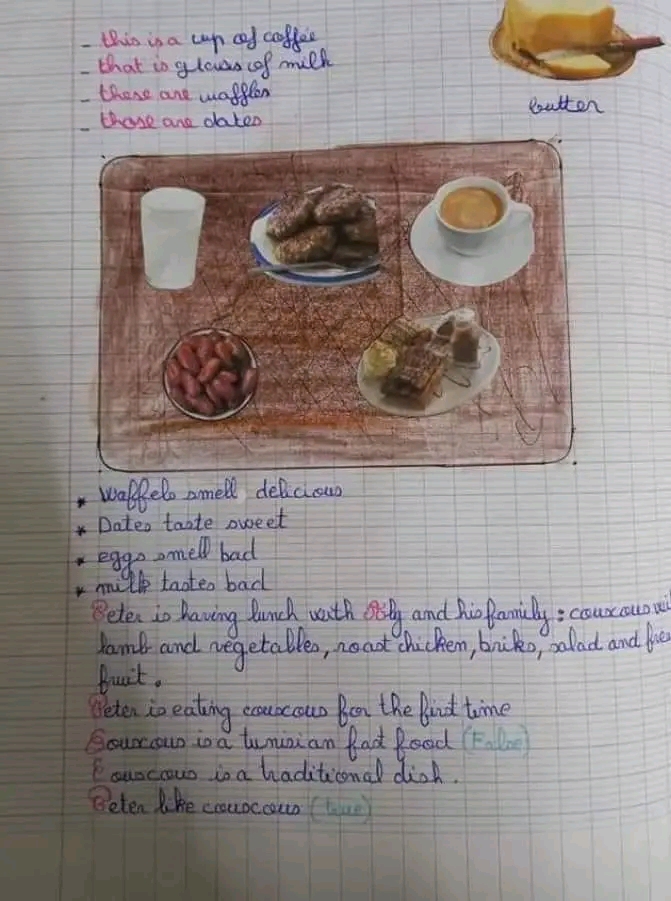 - this is a cup of coffée
- that is glass of milk
- these are waffles
- those are dates
butter
* Waffels smell delicious
* Dates taste sweet
* eggs smell bad
* milk tastes bad
Peter is having lunch with Aly and his family : couscous
lamb and vegetables, roast chicken, briks, salad and
fruit.
Peter is eating couscous for the first time
Couscous is a tunisian fast food (False)
Couscous is a traditional dish.
Peter like couscous (true)